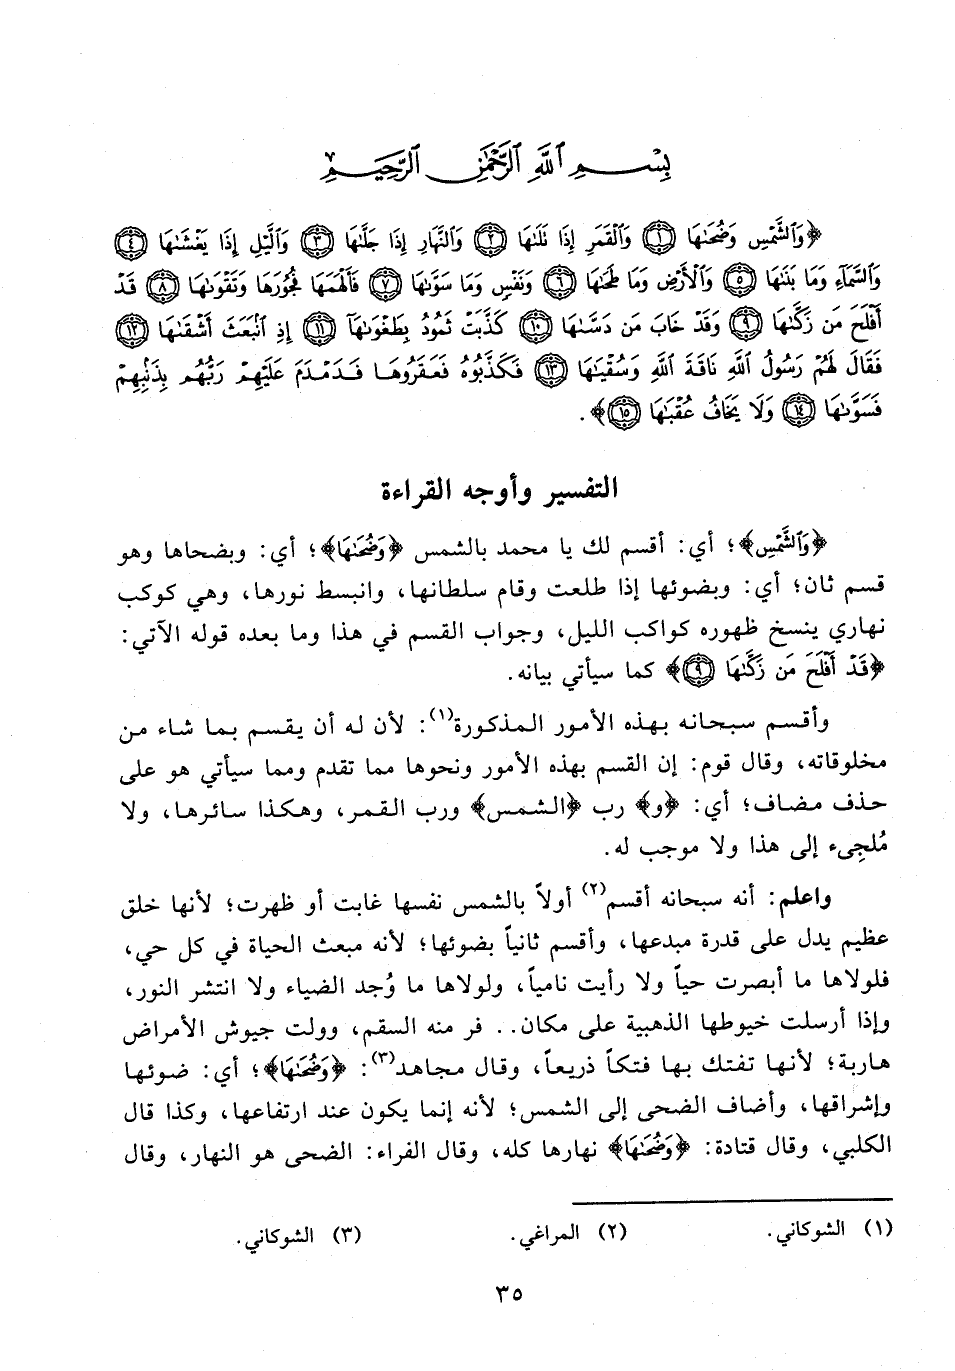 بِسْمِ ٱللَّهِ ٱلرَّحْمَٰنِ ٱلرَّحِيمِ
﴿وَٱلشَّمْسِ وَضُحَىٰهَا ۝١ وَٱلْقَمَرِ إِذَا تَلَىٰهَا ۝٢ وَٱلنَّهَارِ إِذَا جَلَّىٰهَا ۝٣ وَٱلَّيْلِ إِذَا يَغْشَىٰهَا ۝٤
وَٱلسَّمَآءِ وَمَا بَنَىٰهَا ۝٥ وَٱلْأَرْضِ وَمَا طَحَىٰهَا ۝٦ وَنَفْسٍ وَمَا سَوَّىٰهَا ۝٧ فَأَلْهَمَهَا فُجُورَهَا وَتَقْوَىٰهَا ۝٨ قَدْ
أَفْلَحَ مَن زَكَّىٰهَا ۝٩ وَقَدْ خَابَ مَن دَسَّىٰهَا ۝١٠ كَذَّبَتْ ثَمُودُ بِطَغْوَىٰهَآ ۝١١ إِذِ ٱنۢبَعَثَ أَشْقَىٰهَا ۝١٢
فَقَالَ لَهُمْ رَسُولُ ٱللَّهِ نَاقَةَ ٱللَّهِ وَسُقْيَٰهَا ۝١٣ فَكَذَّبُوهُ فَعَقَرُوهَا فَدَمْدَمَ عَلَيْهِمْ رَبُّهُم بِذَنۢبِهِمْ
فَسَوَّىٰهَا ۝١٤ وَلَا يَخَافُ عُقْبَٰهَا ۝١٥﴾.
التفسير وأوجه القراءة
﴿وَٱلشَّمْسِ﴾؛ أي: أقسم لك يا محمد بالشمس ﴿وَضُحَىٰهَا﴾؛ أي: وبضحاها وهو
قسم ثان؛ أي: وبضوئها إذا طلعت وقام سلطانها، وانبسط نورها، وهي كوكب
نهاري ينسخ ظهوره كواكب الليل، وجواب القسم في هذا وما بعده قوله الآتي:
﴿قَدْ أَفْلَحَ مَن زَكَّىٰهَا ۝٩﴾ كما سيأتي بيانه.
وأقسم سبحانه بهذه الأمور المذكورة(١): لأن له أن يقسم بما شاء من
مخلوقاته، وقال قوم: إن القسم بهذه الأمور ونحوها مما تقدم ومما سيأتي هو على
حذف مضاف؛ أي: ﴿و﴾ رب ﴿الشمس﴾ ورب القمر، وهكذا سائرها، ولا
مُلجِىء إلى هذا ولا موجب له.
واعلم: أنه سبحانه أقسم(٢) أولاً بالشمس نفسها غابت أو ظهرت؛ لأنها خلق
عظيم يدل على قدرة مبدعها، وأقسم ثانياً بضوئها؛ لأنه مبعث الحياة في كل حي،
فلولاها ما أبصرت حياً ولا رأيت نامياً، ولولاها ما وُجد الضياء ولا انتشر النور،
وإذا أرسلت خيوطها الذهبية على مكان.. فر منه السقم، وولت جيوش الأمراض
هاربة؛ لأنها تفتك بها فتكاً ذريعاً، وقال مجاهد(٣): ﴿وَضُحَىٰهَا﴾؛ أي: ضوئها
وإشراقها، وأضاف الضحى إلى الشمس؛ لأنه إنما يكون عند ارتفاعها، وكذا قال
الكلبي، وقال قتادة: ﴿وَضُحَىٰهَا﴾ نهارها كله، وقال الفراء: الضحى هو النهار، وقال
(١) الشوكاني. (٢) المراغي. (٣) الشوكاني.
٣٥